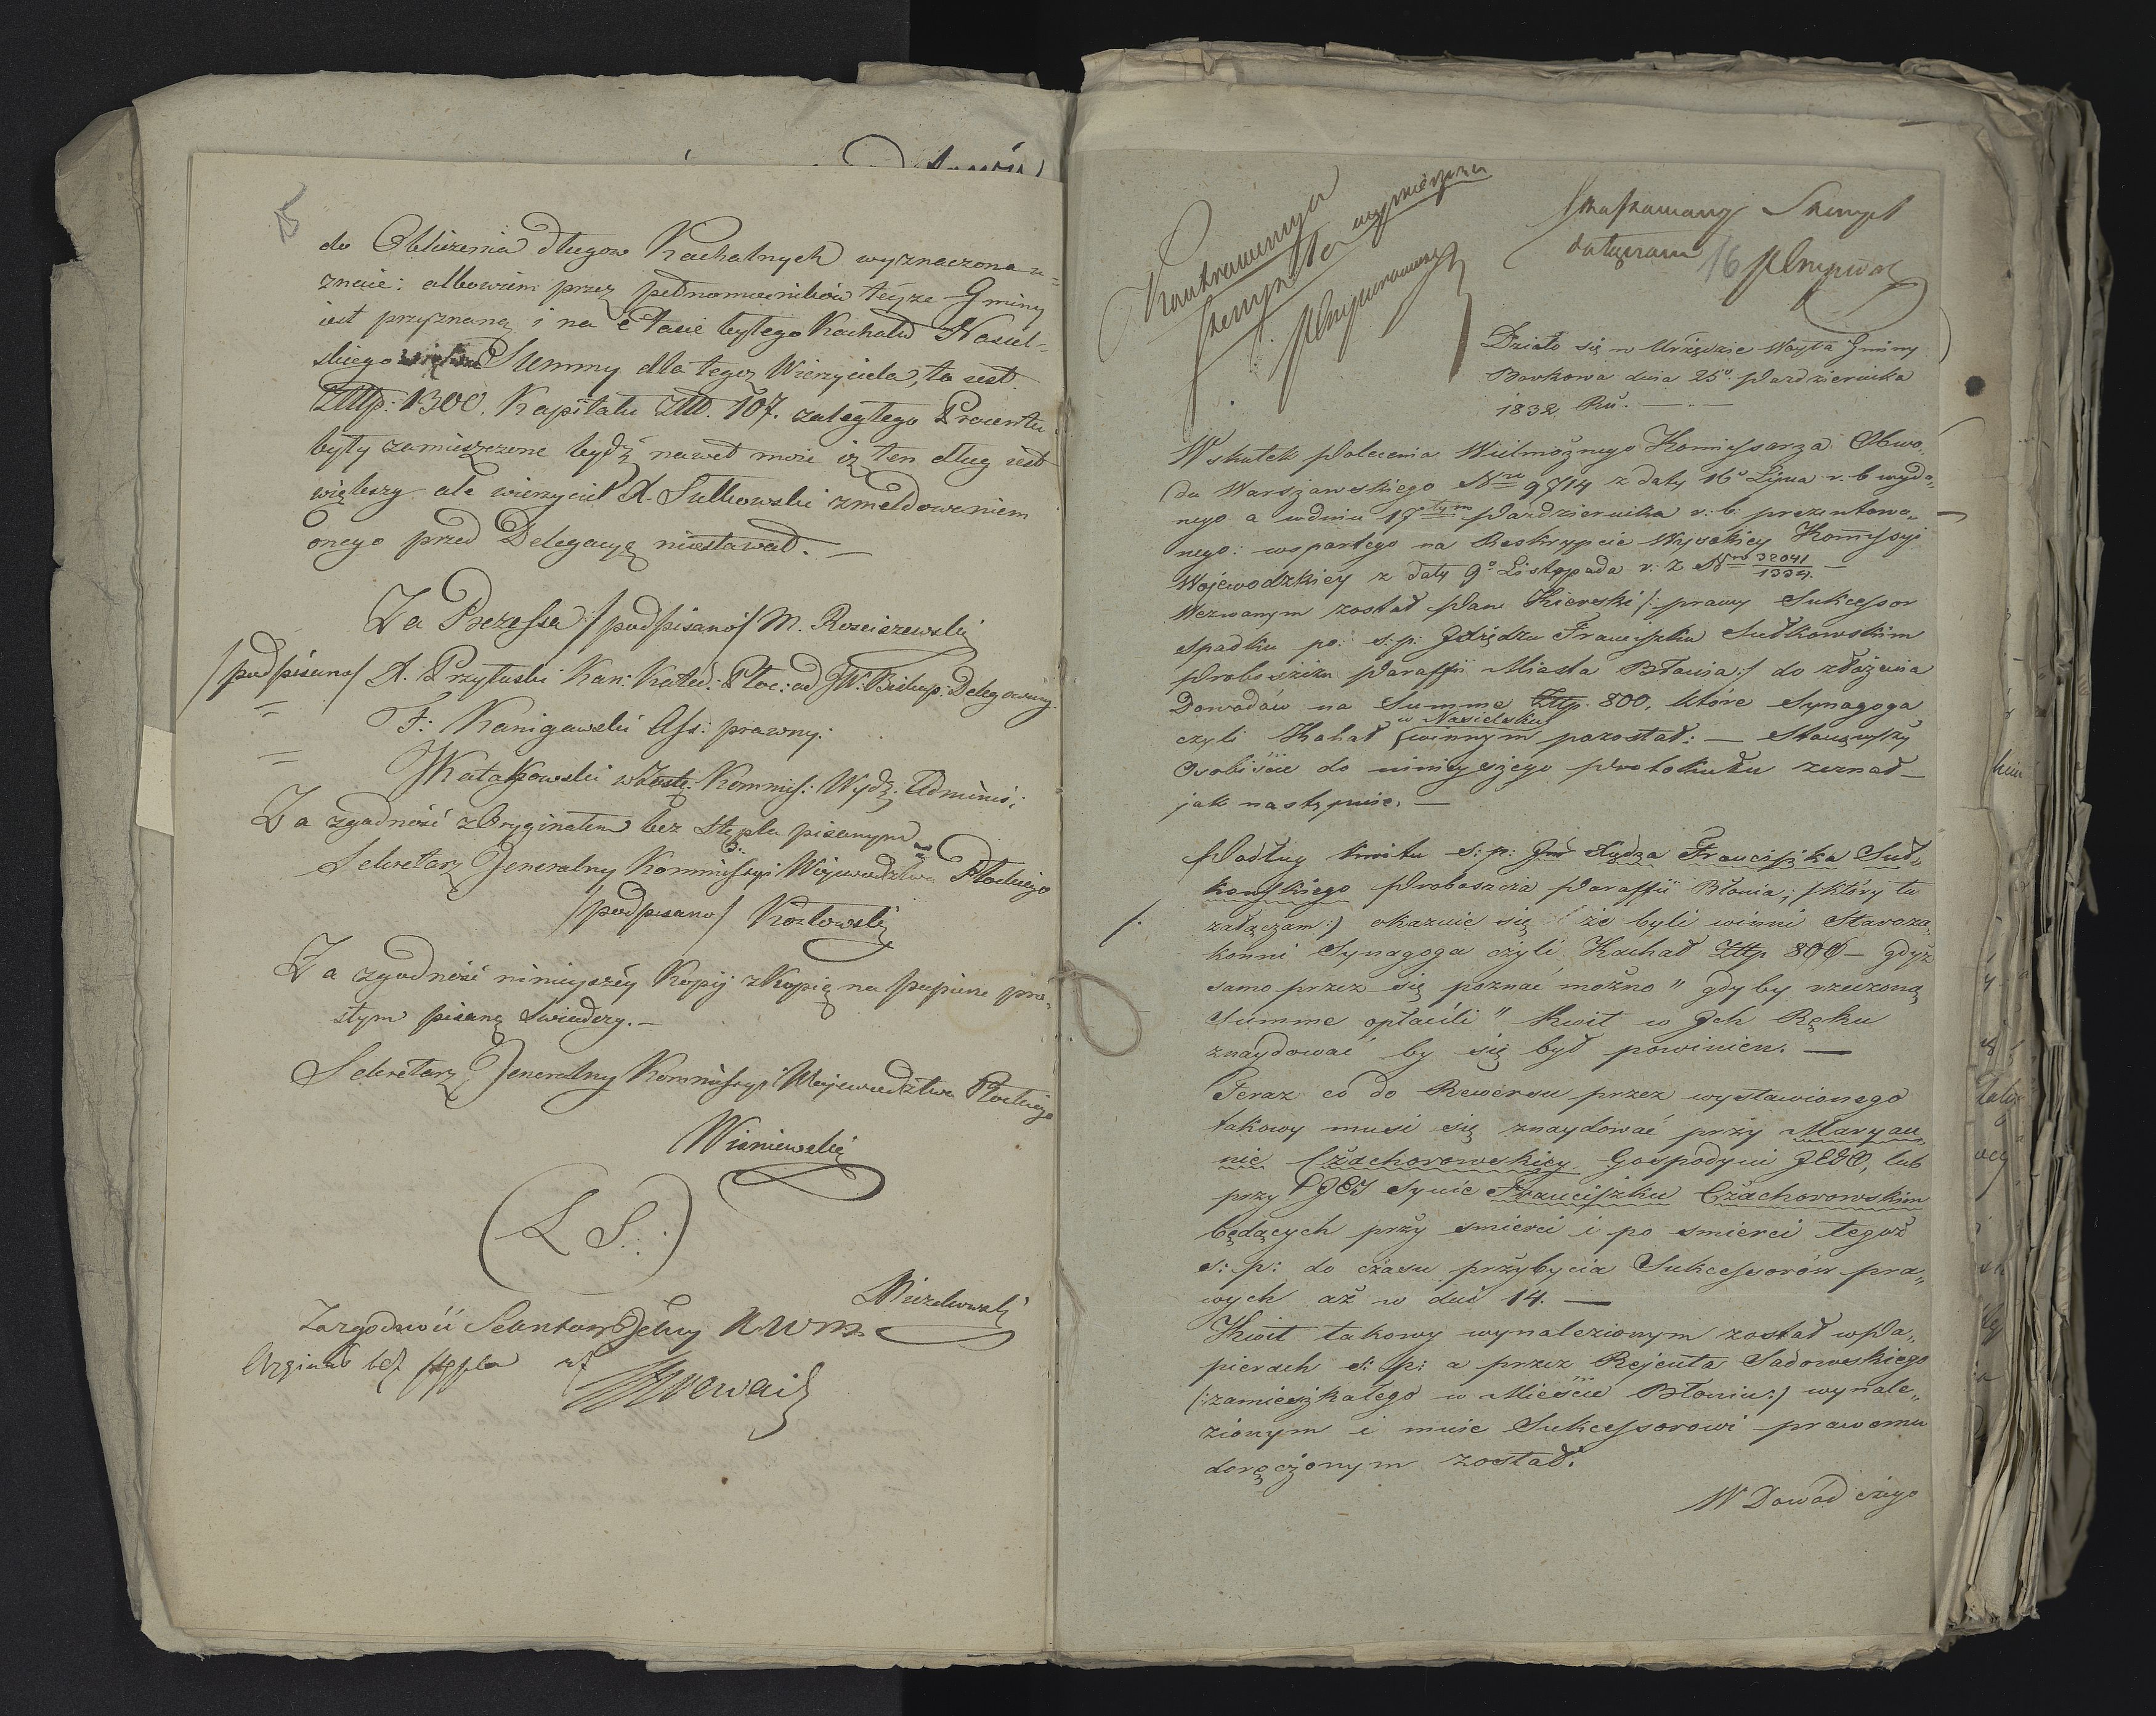 15
do Obliczenia długow Kachalnych wyznaczona u=
znaie: albowiem przez pełnomocników teyże Gminy
iest przyznaną i na Etacie byłego Kachału Nasiel-
skiego Summy dla tegoż Wierzyciela, to iest
Złtp: 1300. Kapitału Złt. 107. zaległego Procentu
były zamieszczone bydź nawet może iż ten dług iest
większy ale wierzyciel X. Sułkowski zmeldowaniem
onego przed Delegacyą niestawał. —
Za Prezessa /podpisano/ M. Rosciszewski
/podpisano/ X. Przyłuski Kan: Kated: Płoc: od JW. Biskup: Delegowany
= F: Kanigowski Ass: prawny:
= Kommis: Wydz: Adminis:
Za zgodność z Oryginałem bez Stępla pisanym
Sekretarz Jeneralny Kommissyi Województwa Płockiego
/podpisano/ Kozłowski
Za zgodność ninieyszéy Kopij z Kopią na papierze pro-
stym pisaną Swiadczy. —
Sekretarz Jeneralny Kommissyi Województwa Płockiego
Wisniewski
(L S:)
Za zgodność Sekretarz Jelny K W M.
Orginał bez stępla
Stempel
16
Działo się w Urzędzie Woyta Gminy
Borkowa dnia 25o. Pazdziernika
1832 Ru. —
W skutek Polecenia Wielmożnego Komissarza Obwo„
du Warszawskiego Nru 9714 z daty 16o Lipca r. b wyda„
nego a wdniu 17tym Pazdziernika r: b: prezentowa„
nego: wspartego na Reskrypcie Wysokiey Komissyi
Wojewodzkiey z daty 9o Listopada r: z Nro 32041/1334. —
Wezwanym został Pan Kierski /: prawy Sukcessor
Spadku po: s: p: Xiędzu Franciszku Sułkowskim
Proboszczu Paraffii Miasta Błonia:/ do złożenia
Dowodów na Summe Złtp. 800, które Synagoga
czyli Kahał w Nasielsku winnym pozostał: — Stanąwszy
Osobiście do ninieyszego Protokułu zeznał —
jak następuie. —
Podług kwitu s: p: Xiędza Franciszka Suł„
kowskiego Proboszcza Paraffii Błonia; /który tu
załączam:) okazuie się że byli winni Staroza„
konni Synagoga czyli Kachał Złtp 800 — gdyż
samo przez się poznać można " gdyby rzeczoną
Summe opłacili " Kwit w Jch Ręku
znaydować by się był powinien. —
Teraz co do Rewersu przez wystawionego
takowy musi się znaydować przy Maryan„
nie Czachorowskiey Gospodyni JEGO, lub
przy JEJ Synie Franciszku Czachorowskim
będących przy smierci i po smierci tegoż
s: p: do czasu przybycia Sukcessorów pra„
wych aż w dni 14. —
Kwit takowy wynalezionym został w Pa„
pierach s: p: a przez Rejenta Sadowskiego
(: zamieszkałego w Mieście Błoniu:) wynale„
zionym i mnie Sukcessorowi prawemu
doręczonym został.
W Dowód czego